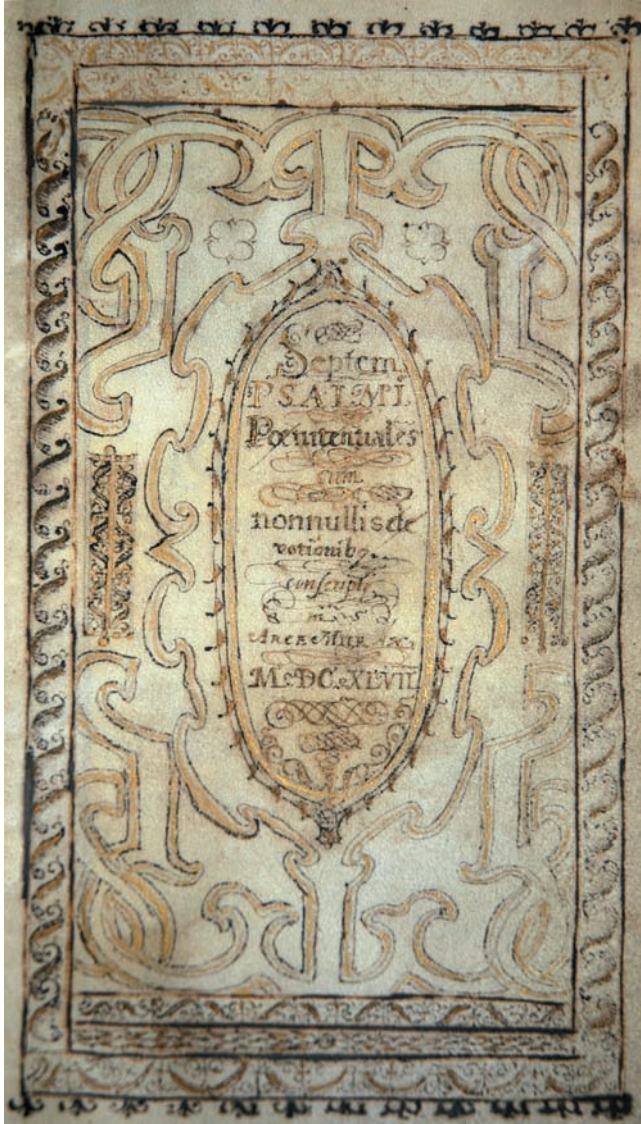 Septem
PSALMI
Pœnitentiales
cum
nonnullis de
votionibꝰ
conscripti
in
M.DC.XLVII